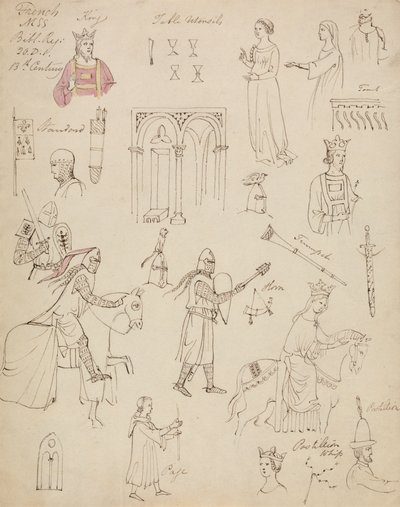 French
MSS
Bibl. Regi
20. D. 
13th Century
King
Table Utensils
Tomb
Standard
Trumpet
Horn
Page
Postillion
Whip
Postillion